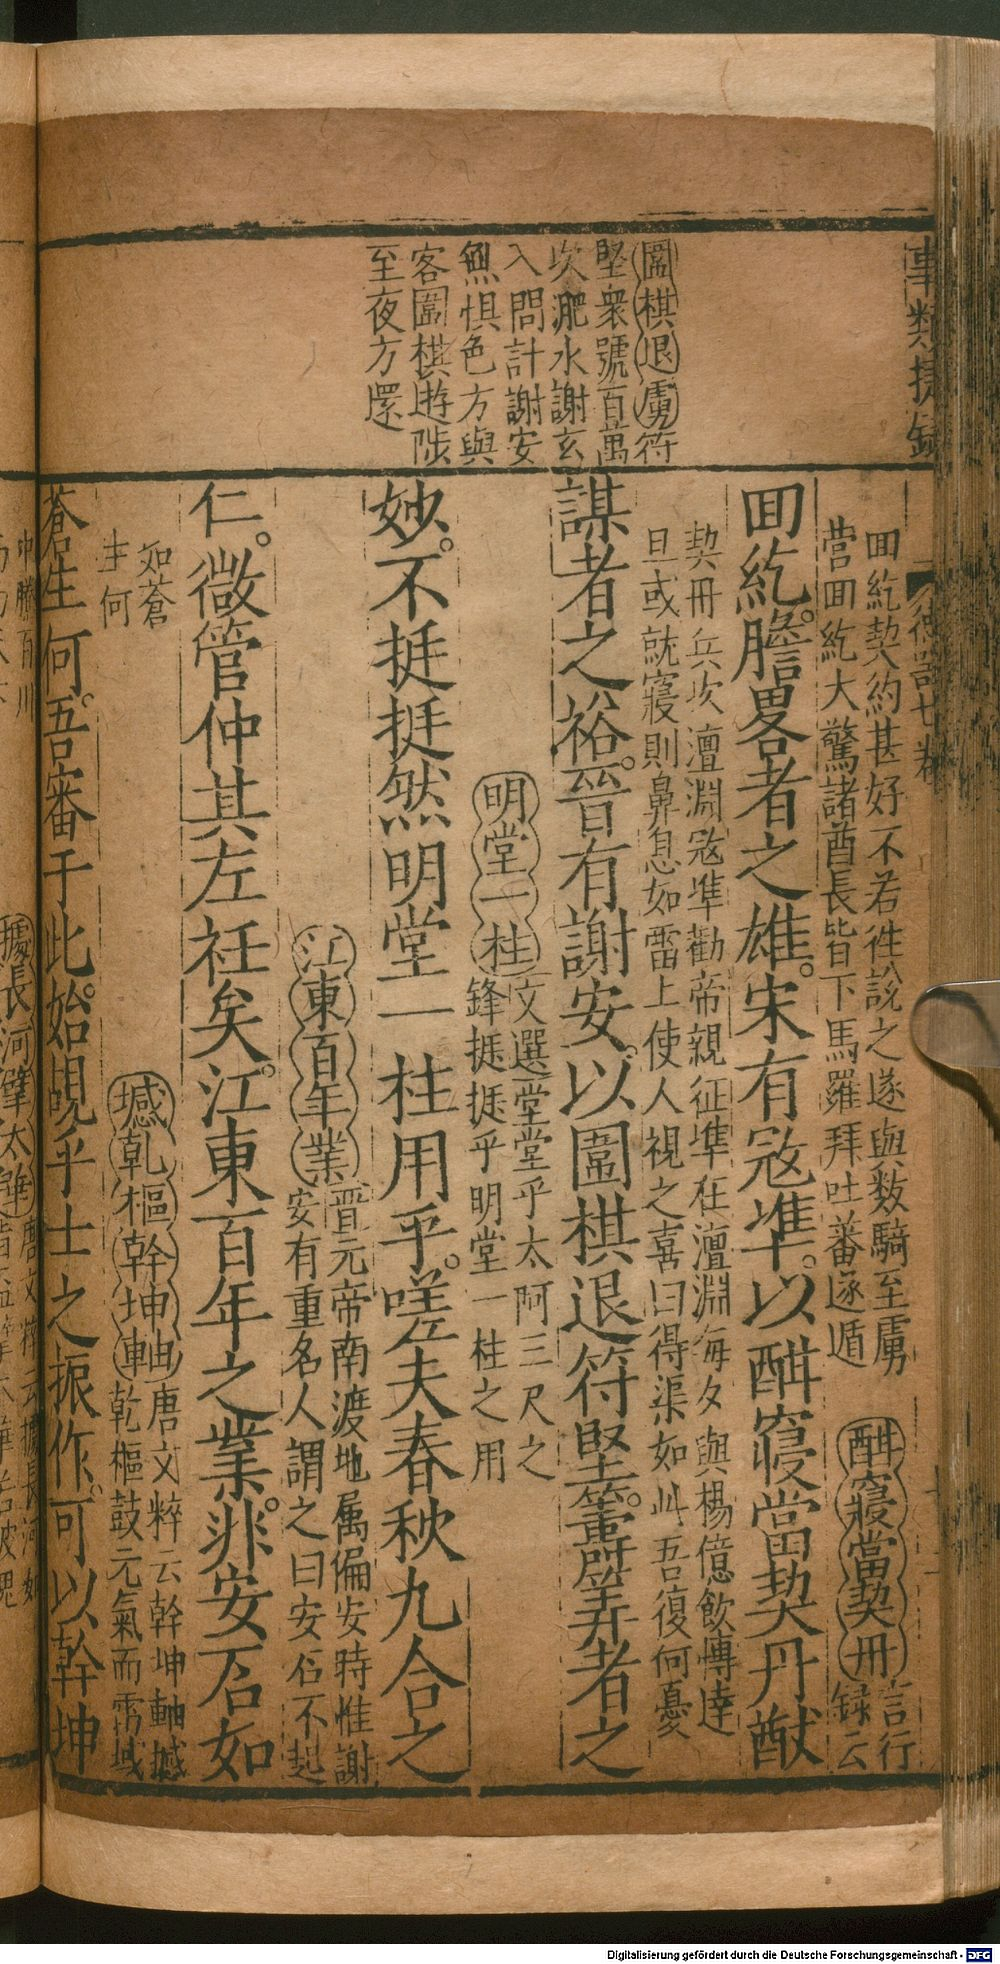 事類捷錄
囬紇契約甚好不若徃說之遂與数騎至虜
營囬紇大驚諸酋長皆下馬羅拜吐蕃逐遁
囬紇。膽畧者之雄。宋有宼凖。以酣寢當契丹。猷
酣寢當契丹言行
録云
契丹兵次澶淵宼凖勸帝親征凖在澶淵每夕與楊億飲愽達
旦或就寢則鼻息如雷上使人視之喜曰得渠如此吾復何憂
謀者之裕。晉有謝安。以圍棋退符堅。籌筭者之
圍棋退虜符
堅衆號百萬
次淝水謝玄
入問計謝安
無惧色方與
客圍棋遊陟
至夜方還
明堂一柱文選堂堂乎太阿三尺之
鋒挺挺乎明堂一柱之用
妙。不挺挺然明堂一柱用乎。嗟夫春秋九合之
江東百年業晋元帝南渡地属偏安時惟謝
安有重名人謂之曰安石不起
仁。微管仲其左衽矣。江東百年之業。非安石如
如蒼
生何
撼乾樞幹坤軸唐文粹云幹坤軸撼
乾樞鼓元氣而雷域
蒼生何。吾審于此。始覘乎士之振作。可以幹坤
據長河擘太華唐文粹云據長河如
Digitalisierung gefördert durch die Deutsche Forschungsgemeinschaft - DFG